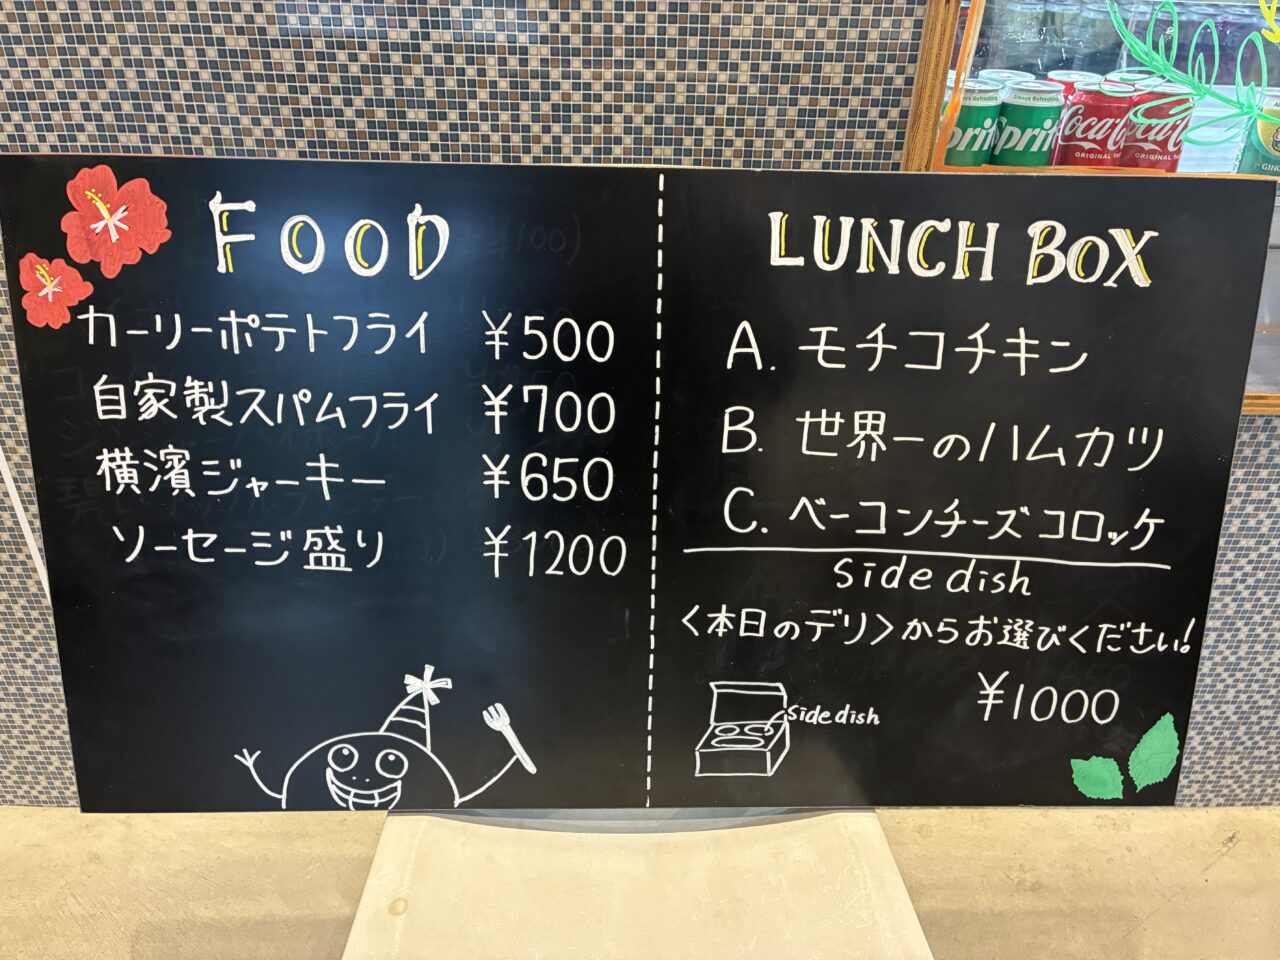 FOOD
カーリーポテトフライ ¥500
自家製スパムフライ ¥700
横濱ジャーキー ¥650
ソーセージ盛り ¥1200
LUNCH BOX
A. モチコチキン
B. 世界一のハムカツ
C. ベーコンチーズコロッケ
side dish
<本日のデリ>からお選びください!
¥1000
side dish
Always Refreshing
Sprite
Coca-Cola
ORIGINAL TASTE